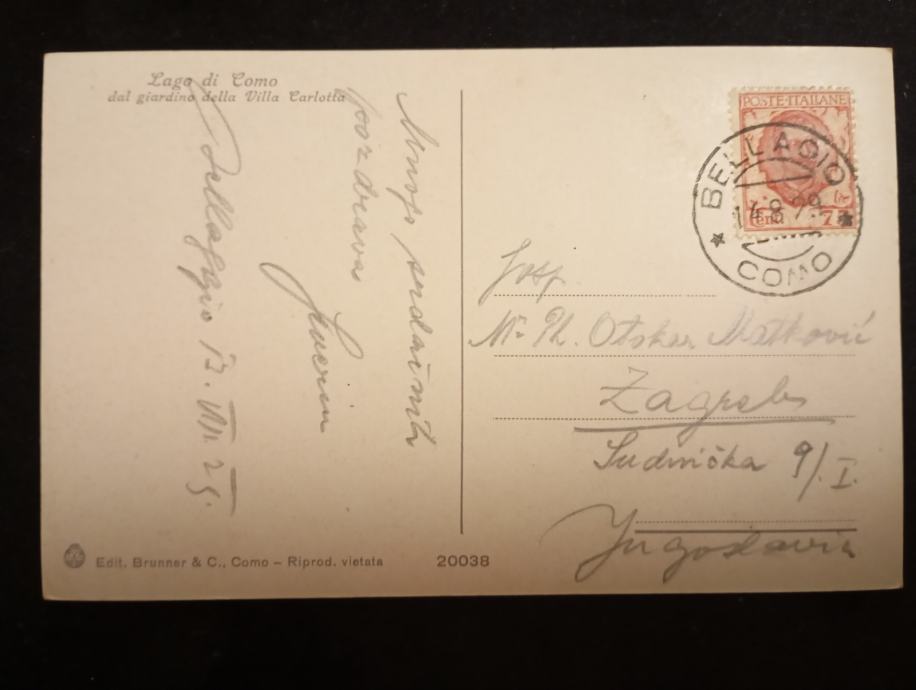 Lago di Como
dal giardino della Villa Carlotta
Mnogo srdačnih
pozdrava
Bellaggio 13. VIII. 29.
POSTE·ITALIANE
Cent. 75
BELLAGIO
14.8.29
COMO
Gosp.
Mr. Ph. Otokar Matković
Zagreb
Sudnička 9/I.
Jugoslavia
Edit. Brunner & C., Como – Riprod. vietata
20038